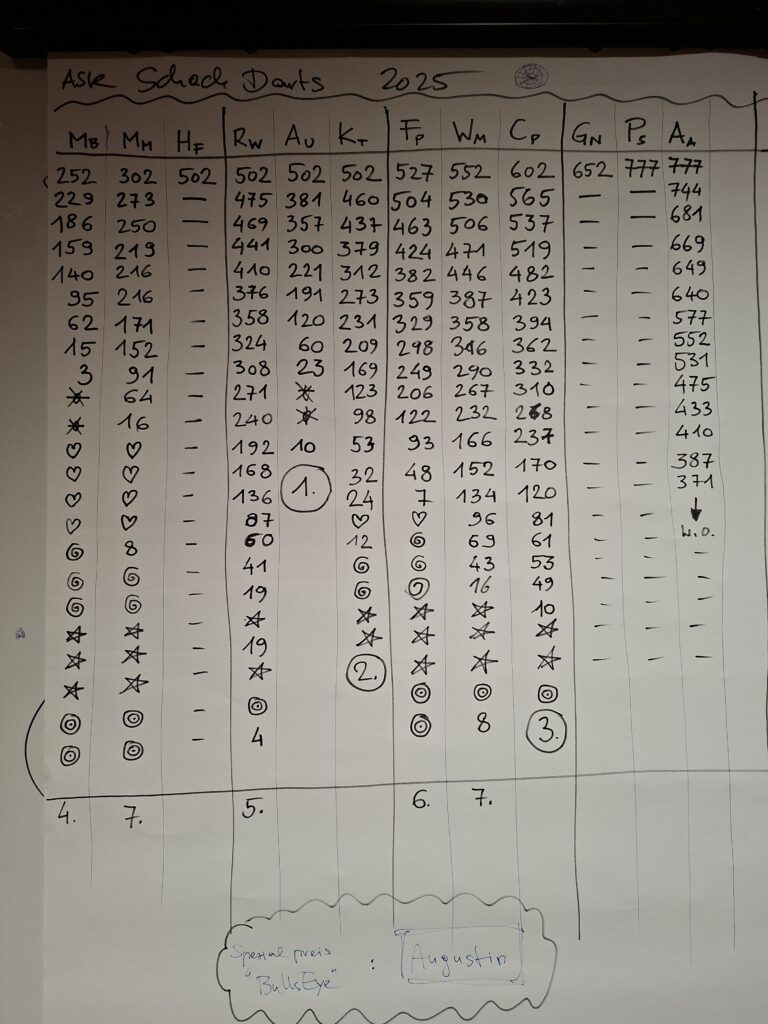 ASK Schach Darts 2025
MB MM HF RW AU KT FP WM CP GN PS AA
252 302 502 502 502 502 527 552 602 652 777 777
229 273 — 475 381 460 504 530 565 — — 744
186 250 — 469 357 437 463 506 537 — — 681
159 219 — 441 300 379 424 471 519 — — 669
140 216 — 410 221 312 382 446 482 — — 649
95 216 — 376 191 273 359 387 423 — — 640
62 171 — 358 120 231 329 358 394 — — 577
15 152 — 324 60 209 298 346 362 — — 552
3 91 — 308 23 169 249 290 332 — — 531
64 — 271 123 206 267 310 — — 475
16 — 240 98 122 232 268 — — 433
— 192 10 53 93 166 237 — — 410
— 168 1. 32 48 152 170 — — 387
— 136 24 7 134 120 — — 371
— 87 96 81 — —
8 — 60 12 69 61 — — W.O.
— 41 43 53 — — —
— 19 16 49 — — —
— 10 — — —
— 19 — — —
— 2. — — —
— 4 8 3.
4. 7. 5. 6. 7.
Spezialpreis
"BullsEye" : Augustin